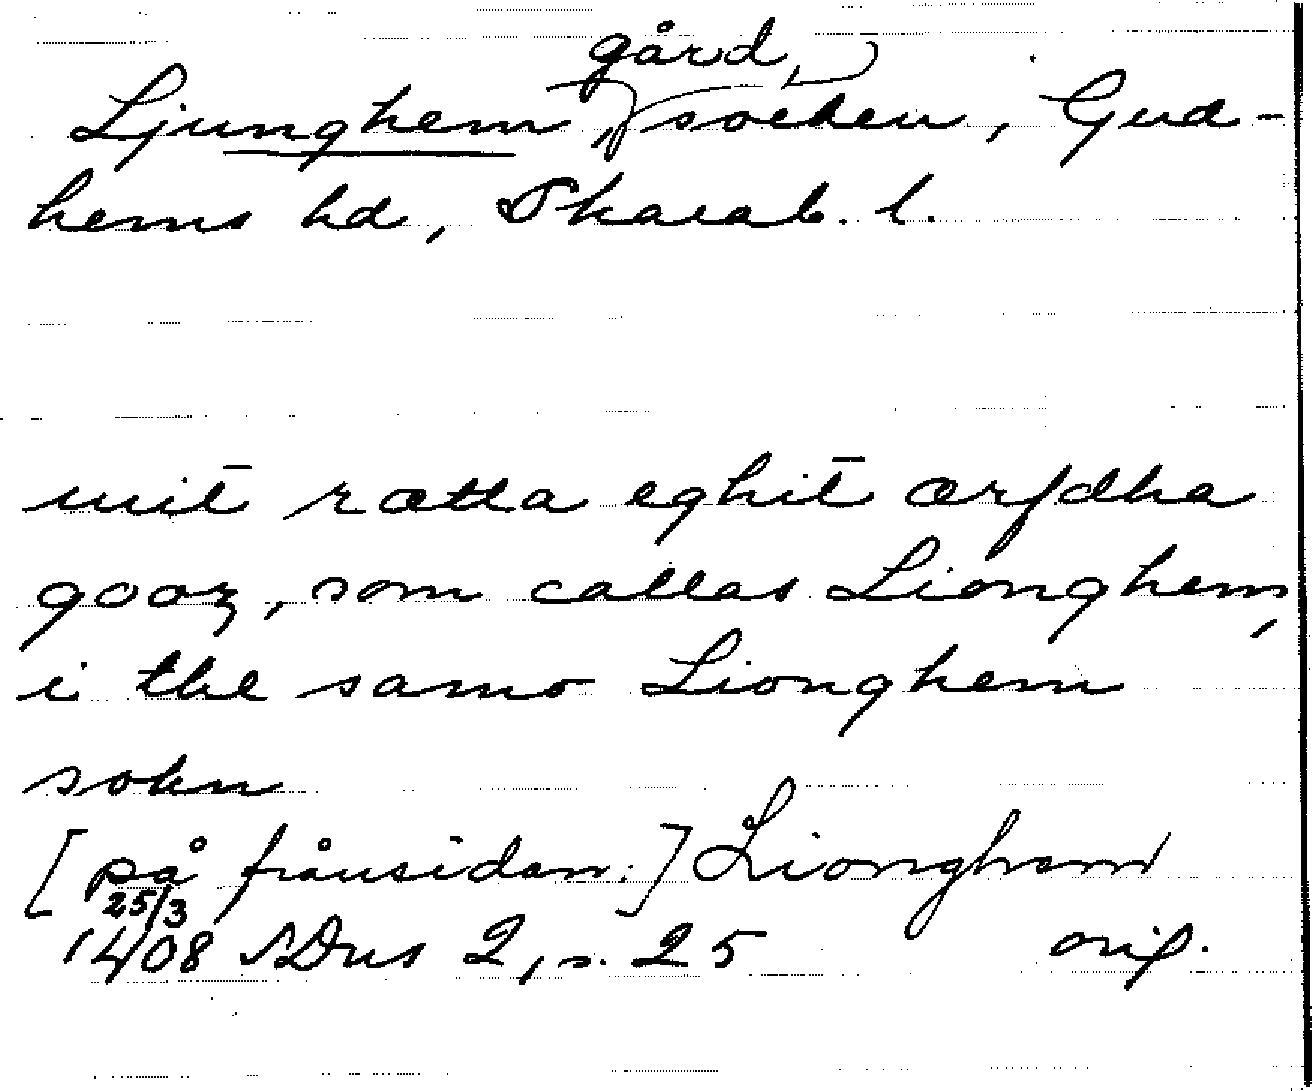 gård,
Ljunghem, socken, Gud-
hems hd, Skarab. l.
mit̄ rætta eghit̄ ærfdha
gooz, som callas Lionghem,
i the samo Lionghem
sokn
[på frånsidan:] Lionghem
25/3
1408 SDns 2, s. 25 orig.